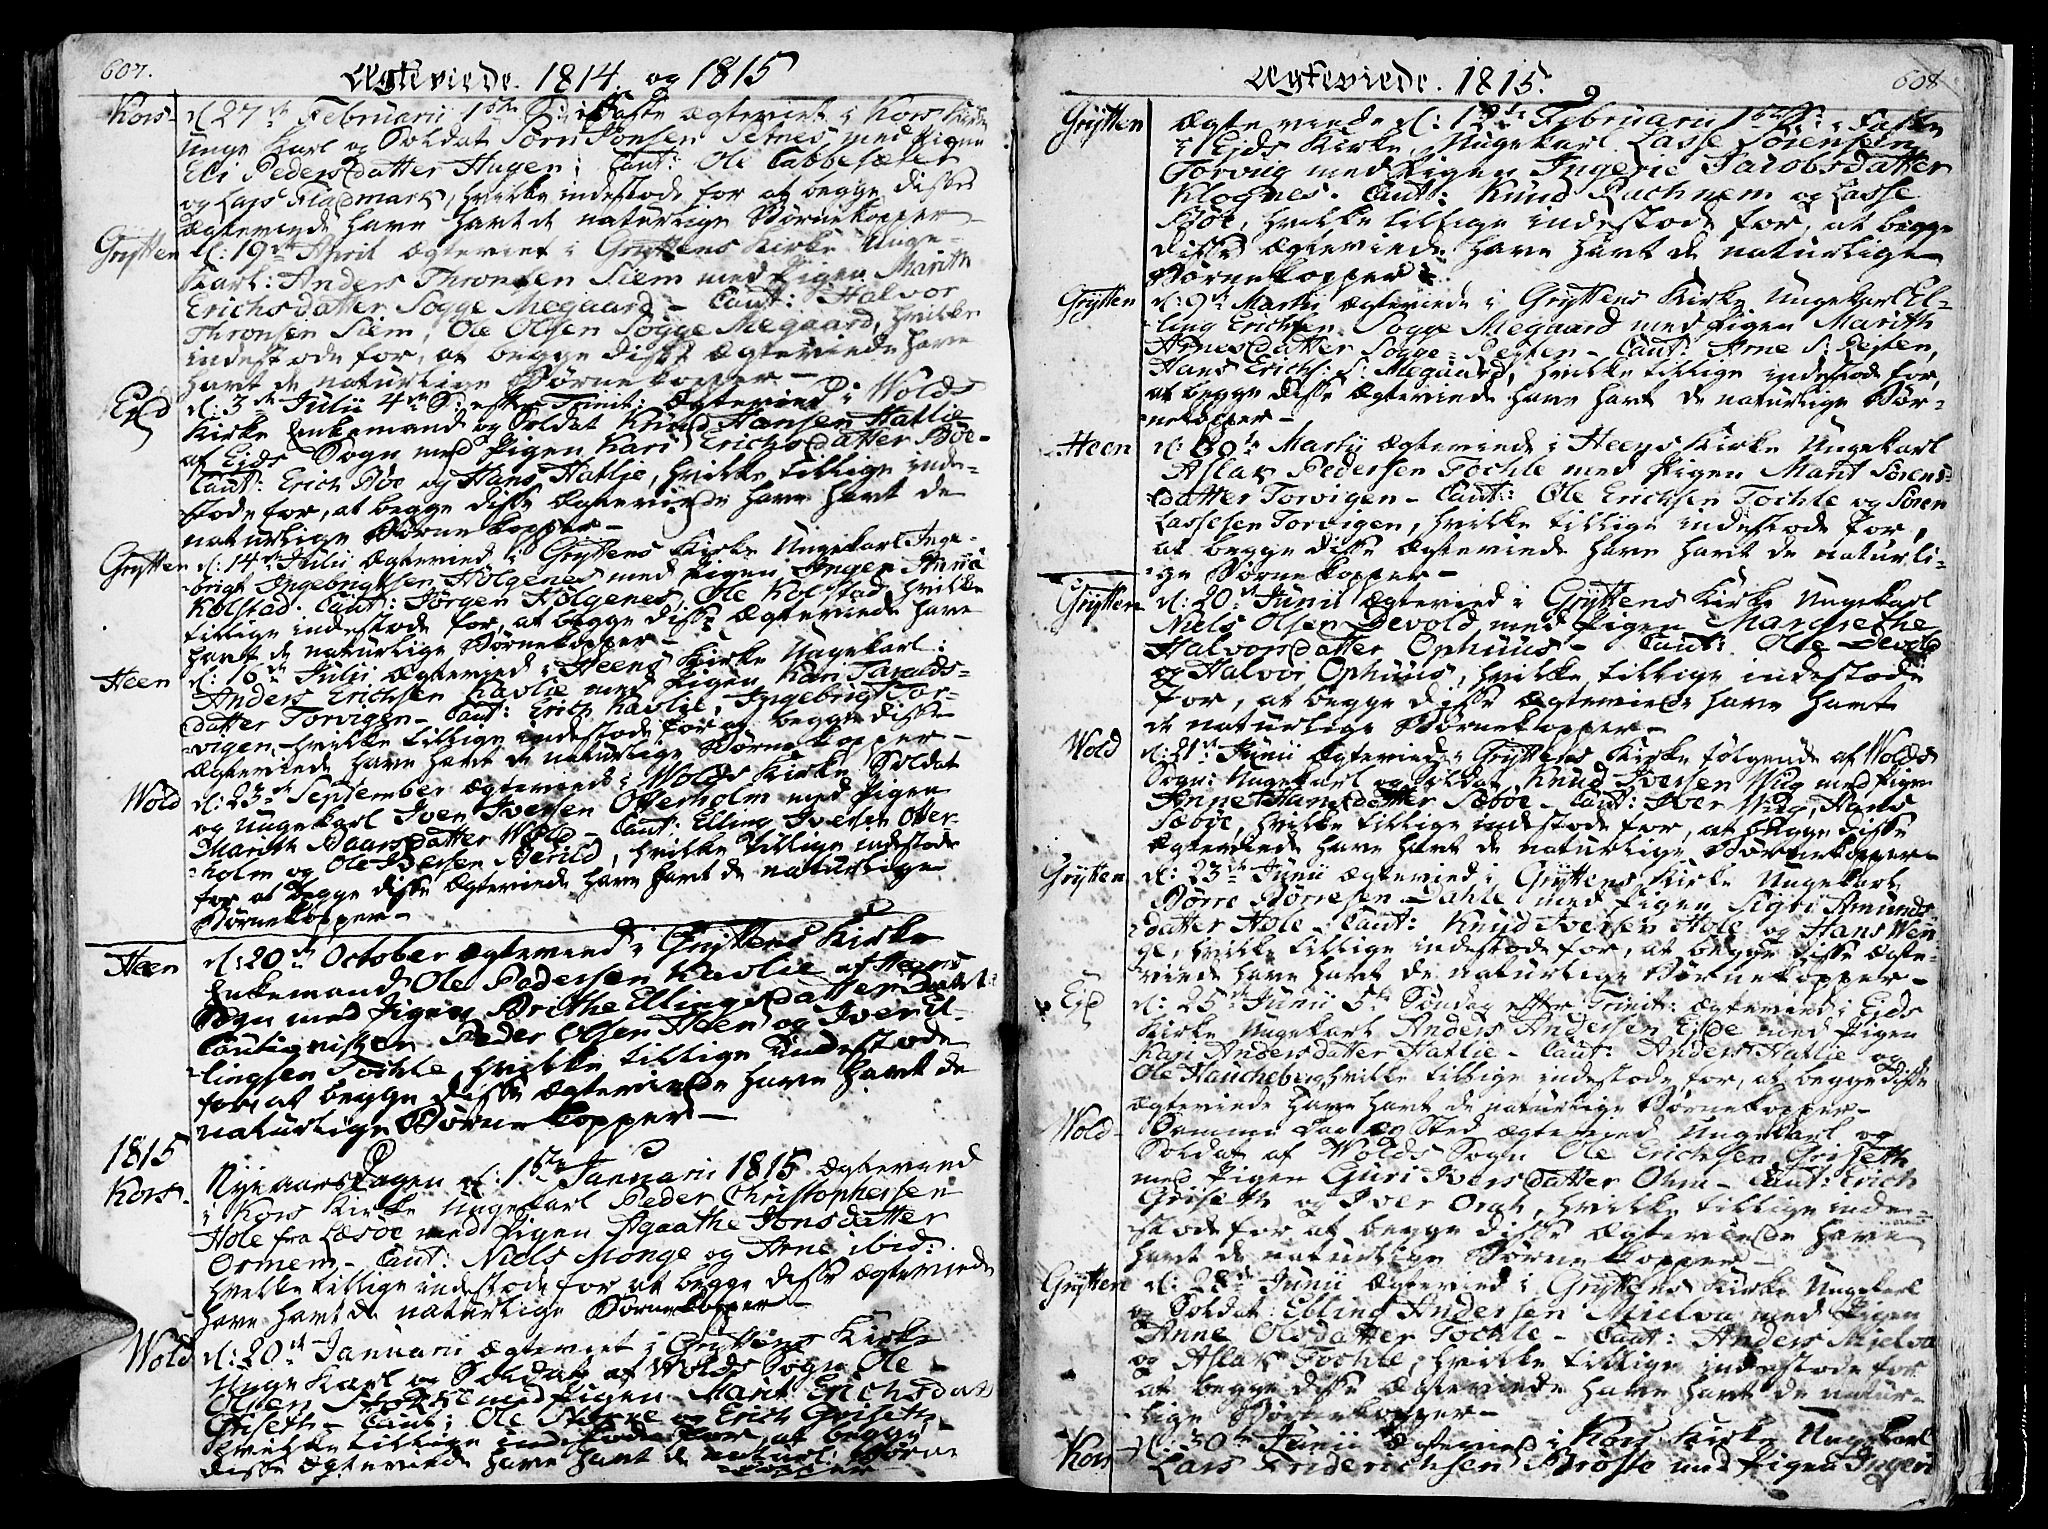 607.
Ægteviede. 1814. og 1815
Kors - d. 27de Februarii 1ste S: i Faste ægteviet i Kors Kirke
Unge Karl og Soldat Sørn Jonsen Setnes med Pigen
Eli Pedersdatter Hagen; Caut: Ole Tabbesæter
og Lars Fladmark, hvilke indestode for at begge disse
ægteviede have havt de naturlige Børnekopper
Grytten d: 19de April ægteviet i Gryttens Kirke Unge-
karl: Anders Thronsen Siem med Pigen Marith
Erichsdatter Sogge Megaard - Caut: Halvor
Thronsen Siem, Ole Olsen Sogge Megaard, hvilke
indestode for, at begge disse Ægteviede have
havt de naturlige Børnekopper -
Eyd d: 3de Julii 4de S: efter Trinit: Ægteviede i Wolds
Kirke Enkemand og Soldat Knud Hansen Hatlie
af Ejds Sogn med Pigen Kari Erichsdatter Bøe -
Caut: Erich Bøe og Hans Hatlie, hvilke tillige inde-
stode for, at begge disse Ægteviede have havt de
naturlige Børnekopper -
Grytten d: 14de Julii Ægteviede i Gryttens Kirke Ungekarl Inge-
brigt Ingebrigtsen Holgenes med Pigen Inger Anna
Kolstad. Caut: Jørgen Holgenes, Ole Kolstad, hvilke
tillige indestode for, at begge disse Ægteviede have
havt de naturlige Børnekopper -
Heen d: 16de Julii Ægteviede i Heens Kirke Ungekarl:
Anders Erichsen Kavlie med Pigen Kari Taralds-
datter Torvigen - Caut: Erich Kavlie, Ingebrigt Tor-
vigen, hvilke tillige indestode for at begge disse
Ægteviede have havt de naturlige Børnekopper -
Wold d: 23de September ægteviede i Wolds Kirke Soldat
og Ungekarl Iven Iversen Otterholm med Pigen
Marith Baarsdatter Wold - Caut: Elling Iversen Otter-
holm og Ole Bersen Berild, hvilke tillige indestode
for at begge disse Ægteviede have havt de naturlige
Børnekopper -
Heen d: 20de October Ægteviede i Gryttens Kirke
Enkemand Ole Pedersen Kavlie af Heens
Sogn med Pigen Brithe Ellingsdatter
Cautionister. Peder Olsen Heen og Iver El-
lingsen Tochle, hvilke tillige indestode
for, at begge disse Ægteviede have havt de
naturlige Børnekopper -
1815
Kors. Nyeaars Dagen d. 1ste Januarii 1815. Ægteviede
i Kors Kirke Ungekarl Peder Christophersen
Hole fra Læsøe med Pigen Agaathe Jonsdatter
Ormem - Caut: Niels Monge og Arne ibid:
hvilke tillige indestode for at begge disse Ægteviede
have havt de naturlige Børnekopper -
Wold d: 20de Januarii ægteviet i Gryttens Kirke
Unge Karl og Soldat af Wolds Sogn Ole
Olsen Stokke med Pigen Marit Erichsdat
Griseth - Caut: Ole Stokke og Erich Griseth,
hvilke tillige indestode for, at begge
disse Ægteviede have havt de naturl: Børne
kopper
608
Ægteviede. 1815.
Grytten Ægteviede d: 12te Februarii 1ste S: i Faste
i Ejds Kirke, Ungekarl Lasse Sørensen
Torvig med Pigen Ingerie Jacobsdatter
Klognes. Caut: Knud Rachnem og Lasse
Bøe, hvilke tillige indestode for, at begge
disse Ægteviede have havt de naturlige
Børnekopper.
Grytten d: 9de Martii Ægteviede i Gryttens Kirke Ungekarl El-
ling Erichsen Sogge Megaard med Pigen Marith
Arnesdatter Sogge - Røsten - Caut: Arne S: Røsten,
Hans Erich: S: Megaard, hvilke tillige indestode for,
at begge disse Ægteviede have havt de naturlige Bør-
nekopper -
Heen d: 30te Martii Ægteviede i Heens Kirke Ungekarl
Aslak Pedersen Tochle med Pigen Marit Sørens-
datter Torvigen - Caut: Ole Erichsen Tochle og Søren
Lassesen Torvigen, hvilke tillige indestode for,
at begge disse Ægteviede have havt de naturli-
ge Børnekopper -
Grytten d: 20de Junii Ægteviede i Gryttens Kirke Ungekarl
Niels Olsen Devold med Pigen Margrethe
Halvorsdatter Ophuus - Caut: Ole Devold
og Halvor Ophuus, hvilke tillige indestode
for, at begge disse Ægteviede have havt
de naturlige Børnekopper -
Wold d: 21de Junii Ægteviede i Gryttens Kirke følgende af Wolds
Sogn: Ungekarl og Soldat Knud Iversen Wiig med Pigen
Anne Hansdatter Sæbøe - Caut: Iver Wiig, Hans
Sæbøe, hvilke tillige indestode for, at begge disse
Ægteviede have havt de naturlige Børnekopper -
Grytten d: 23de Junii Ægteviede i Gryttens Kirke Ungekarl
Børre Børresen Dahle med Pigen Sigri Amunds-
datter Hole - Caut: Knud Iversen Hole og Hans Wen-
ge, hvilke tillige indestode for, at begge disse Ægte-
viede have havt de naturlige Børnekopper -
Eyd d: 25de Junii 5te Søndag efter Trinit: Ægteviede i Ejds
Kirke Ungekarl Anders Andersen Eide med Pigen
Kari Andersdatter Hatlie - Caut: Anders Hatlie og
Ole Hauchebergh, hvilke tillige indestode for, at begge disse
ægteviede have havt de naturlige Børnekopper -
Wold - Samme Dag og Sted ægteviede Ungekarl og
Soldat af Wolds Sogn Ole Erichsen Griseth
med Pigen Guri Iversdatter Ohm - Caut: Erich
Griseth og Iver Orah, hvilke tillige inde-
stode for at begge disse Ægteviede have
havt de naturlige Børnekopper -
Grytten d: 28de Junii Ægteviede i Gryttens Kirke Ungekarl
og Soldat: Elling Andersen Mielva med Pigen
Anne Olsdatter Tochle - Caut: Anders Mielva
og Aslak Tochle, hvilke tillige indestode for
at begge disse Ægteviede have havt de natur-
lige Børnekopper -
Kors d: 30te Junii Ægteviede i Kors Kirke Ungekarl
Lars Friderichsen Brøste med Pigen Ingeri